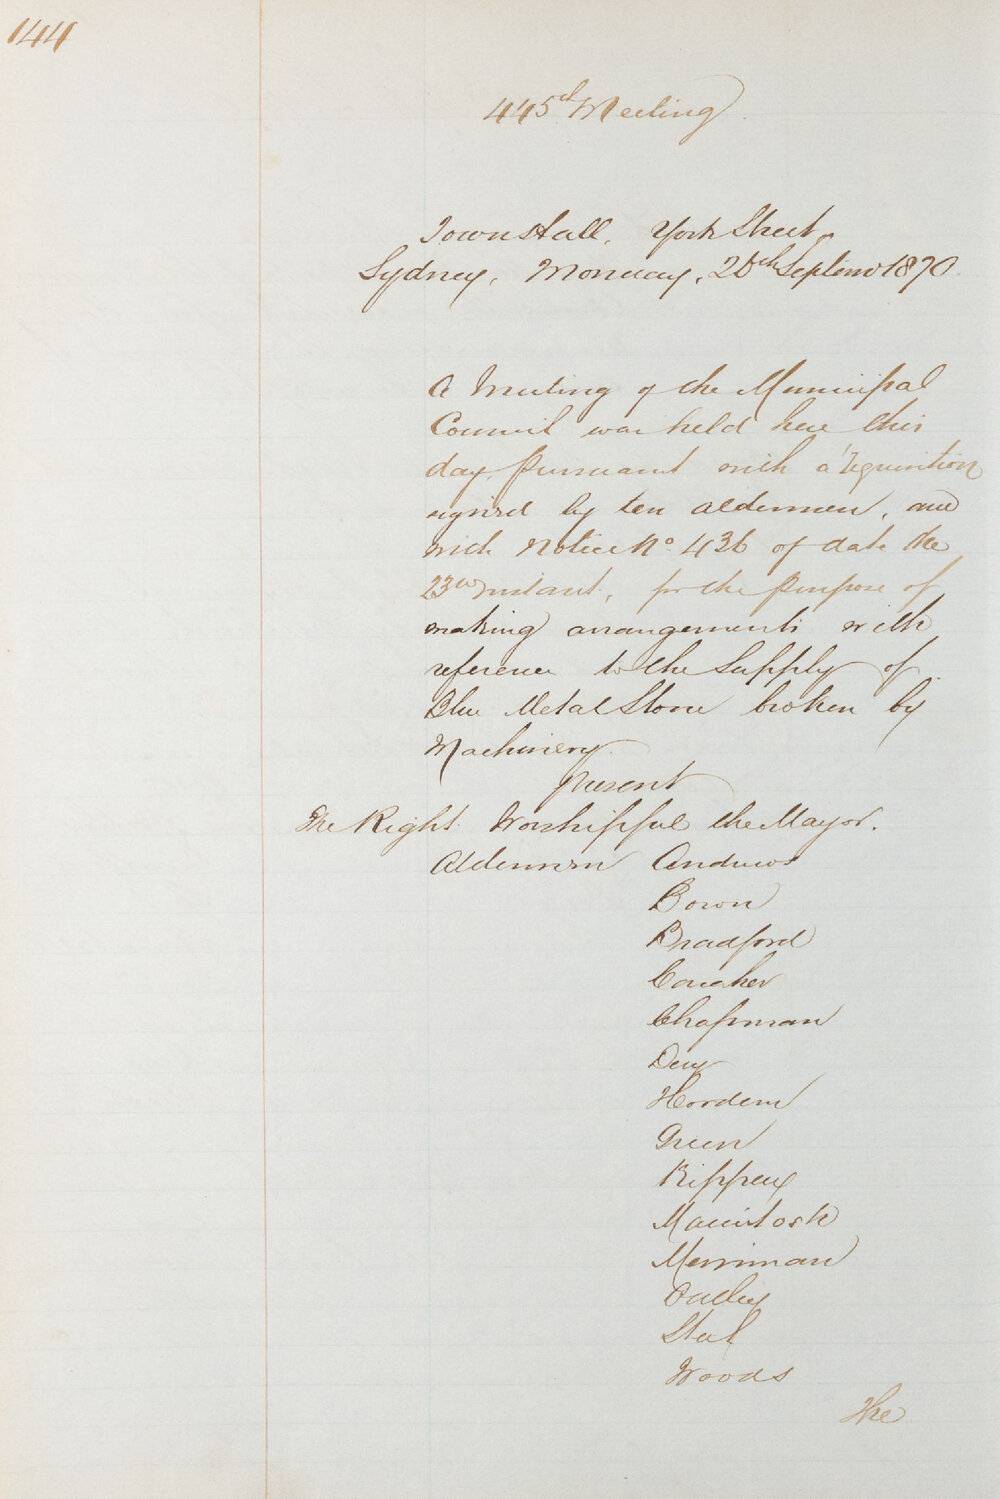 144
445th Meeting
Town Hall, York Street,
Sydney, Monday, 26th Septemr 1870.
A Meeting of the Municipal
Council was held here this
day, pursuant with a requisition
signed by ten aldermen, and
with Notice No. 436 of date the
23rd instant, for the purpose of
making arrangements with
reference to the Supply of
Blue Metal Stone broken by
Machinery.
present
The Right Worshipful the Mayor.
Aldermen Andrews
Bown
Bradford
Caraher
Chapman
Day
Hordern
Green
Kippax
Macintosh
Merriman
Oatley
Steel
Woods
The